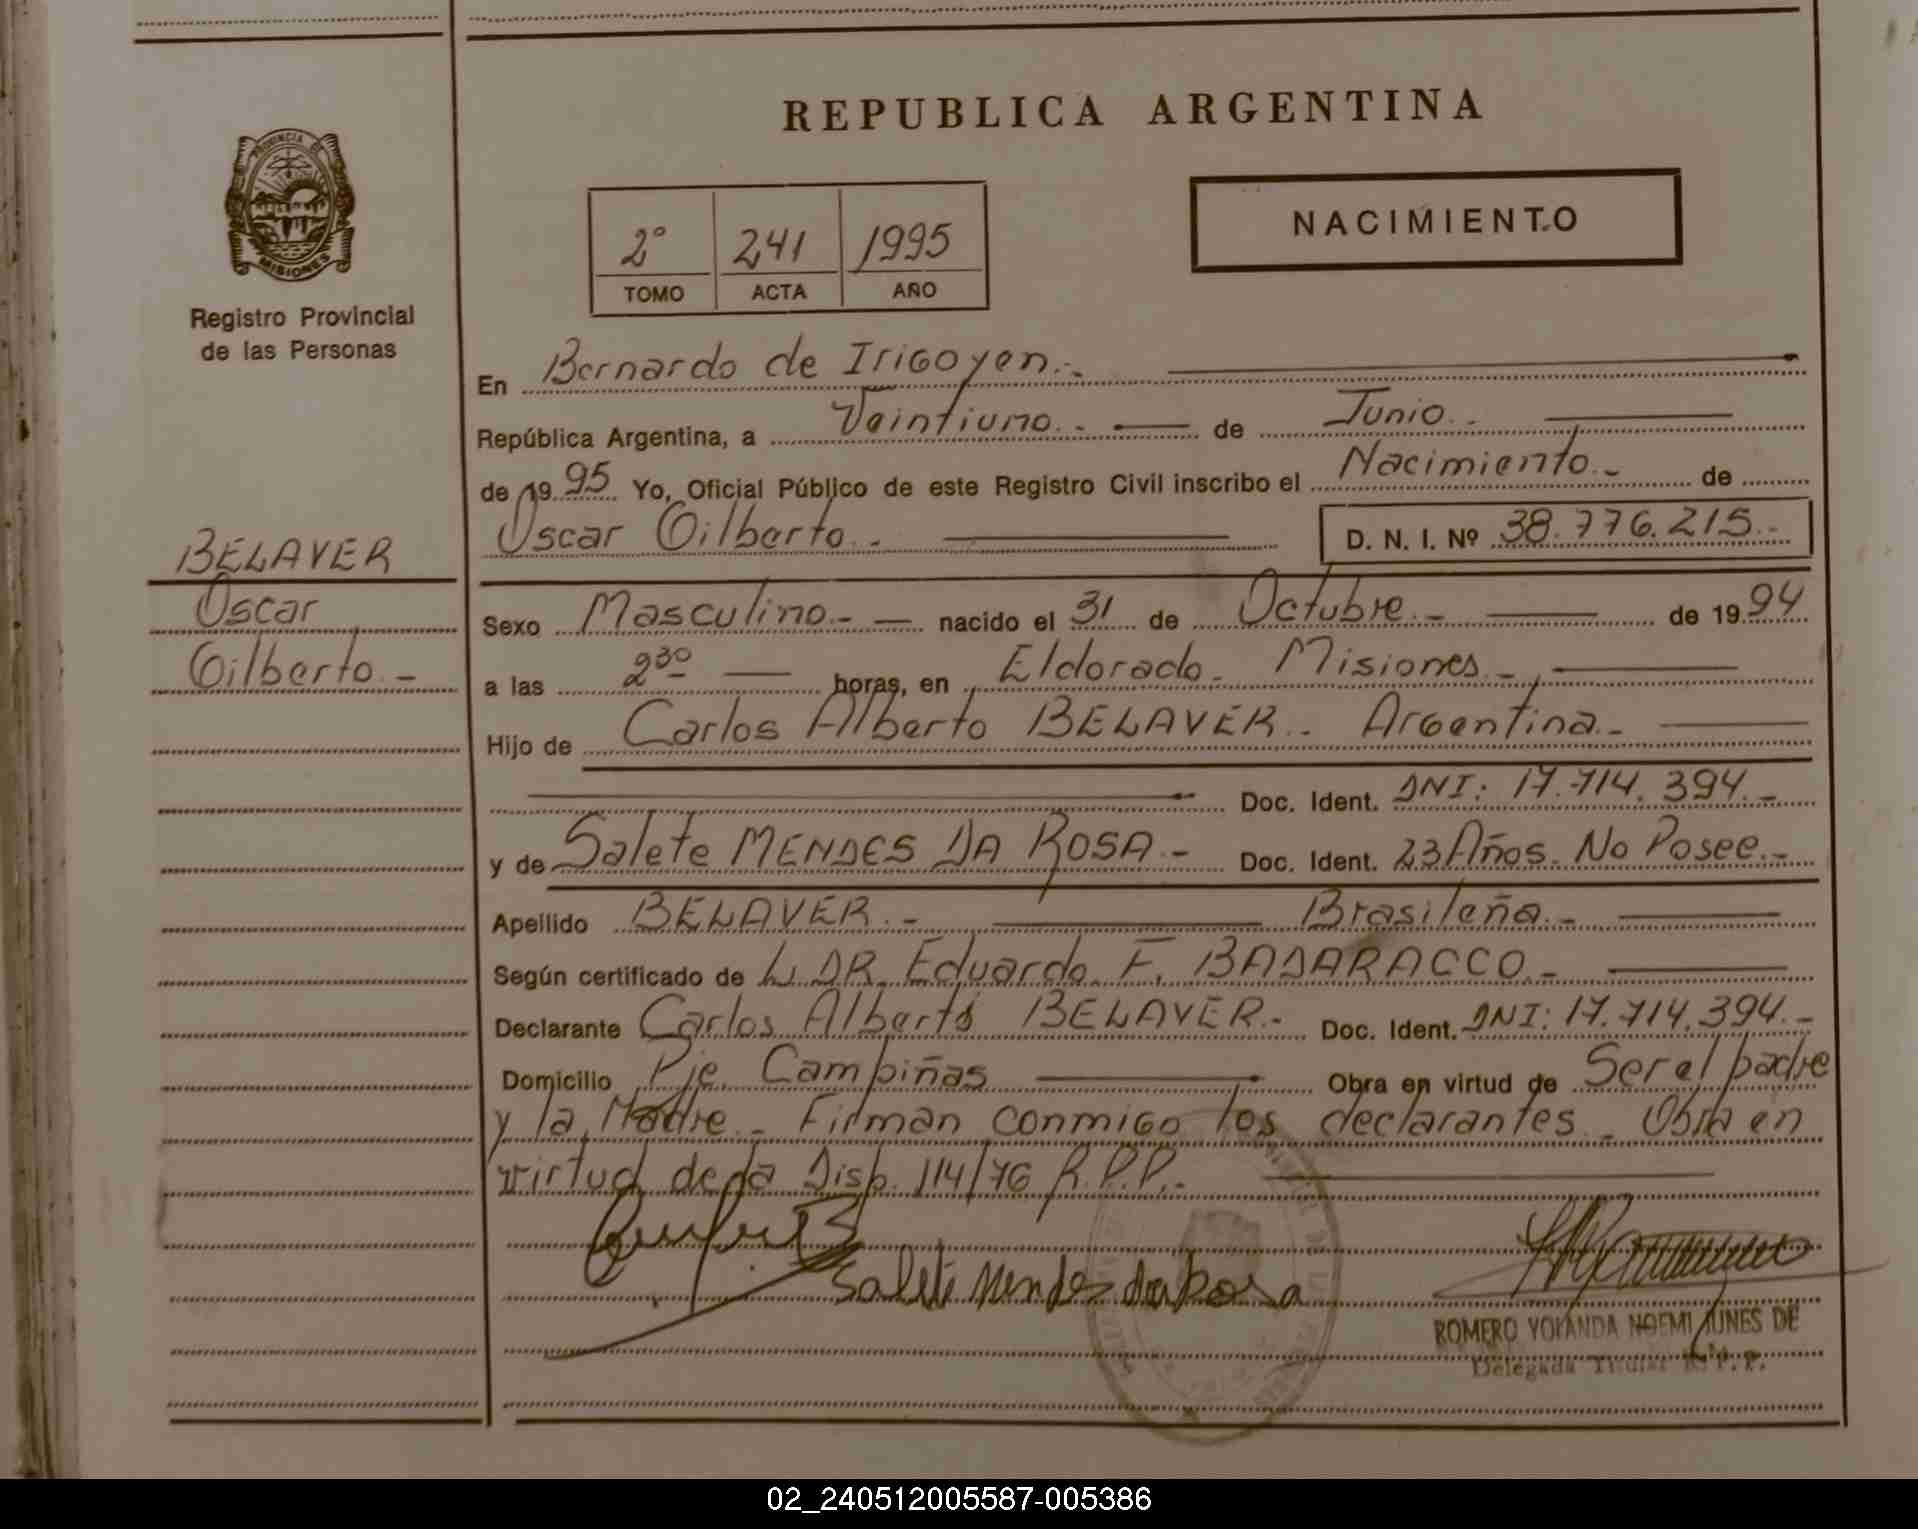 REPUBLICA ARGENTINA
PROVINCIA DE
MISIONES
Registro Provincial
de las Personas
2º 241 1995
TOMO ACTA AÑO
NACIMIENTO
En Bernardo de Irigoyen.-
República Argentina, a Veintiuno.- de Junio.-
de 1995 Yo, Oficial Público de este Registro Civil inscribo el Nacimiento.- de
Oscar Gilberto.- D. N. I. Nº 38.776.215.-
BELAVER
Oscar
Gilberto.-
Sexo Masculino.- nacido el 31 de Octubre.- de 1994
a las 2³⁰ horas, en Eldorado - Misiones.-
Hijo de Carlos Alberto BELAVER.- Argentina.-
Doc. Ident. DNI: 17.714.394.-
y de Salete MENDES DA ROSA.- Doc. Ident. 23 Años. No Posee.-
Apellido BELAVER.- Brasileña.-
Según certificado de L DR. Eduardo F. BADARACCO.-
Declarante Carlos Alberto BELAVER.- Doc. Ident. DNI: 17.714.394.-
Domicilio Pje. Campiñas Obra en virtud de Ser el padre
y la Madre.- Firman conmigo los declarantes.- Obra en
virtud de la Disp. 114/76 R.P.P.-
Salete Mendes da Rosa
ROMERO YOLANDA NOEMI JUNES DE
Delegada Titular R.P.P.
02_240512005587-005386